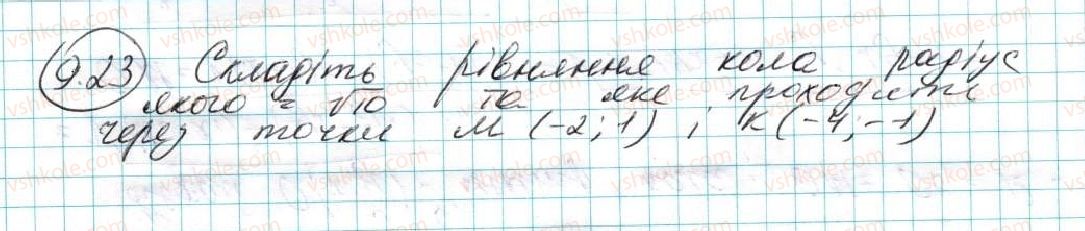 9.23 Складіть рівняння кола радіус
якого = √10 та яке проходить
через точки М (-2; 1) і К (-4; -1)